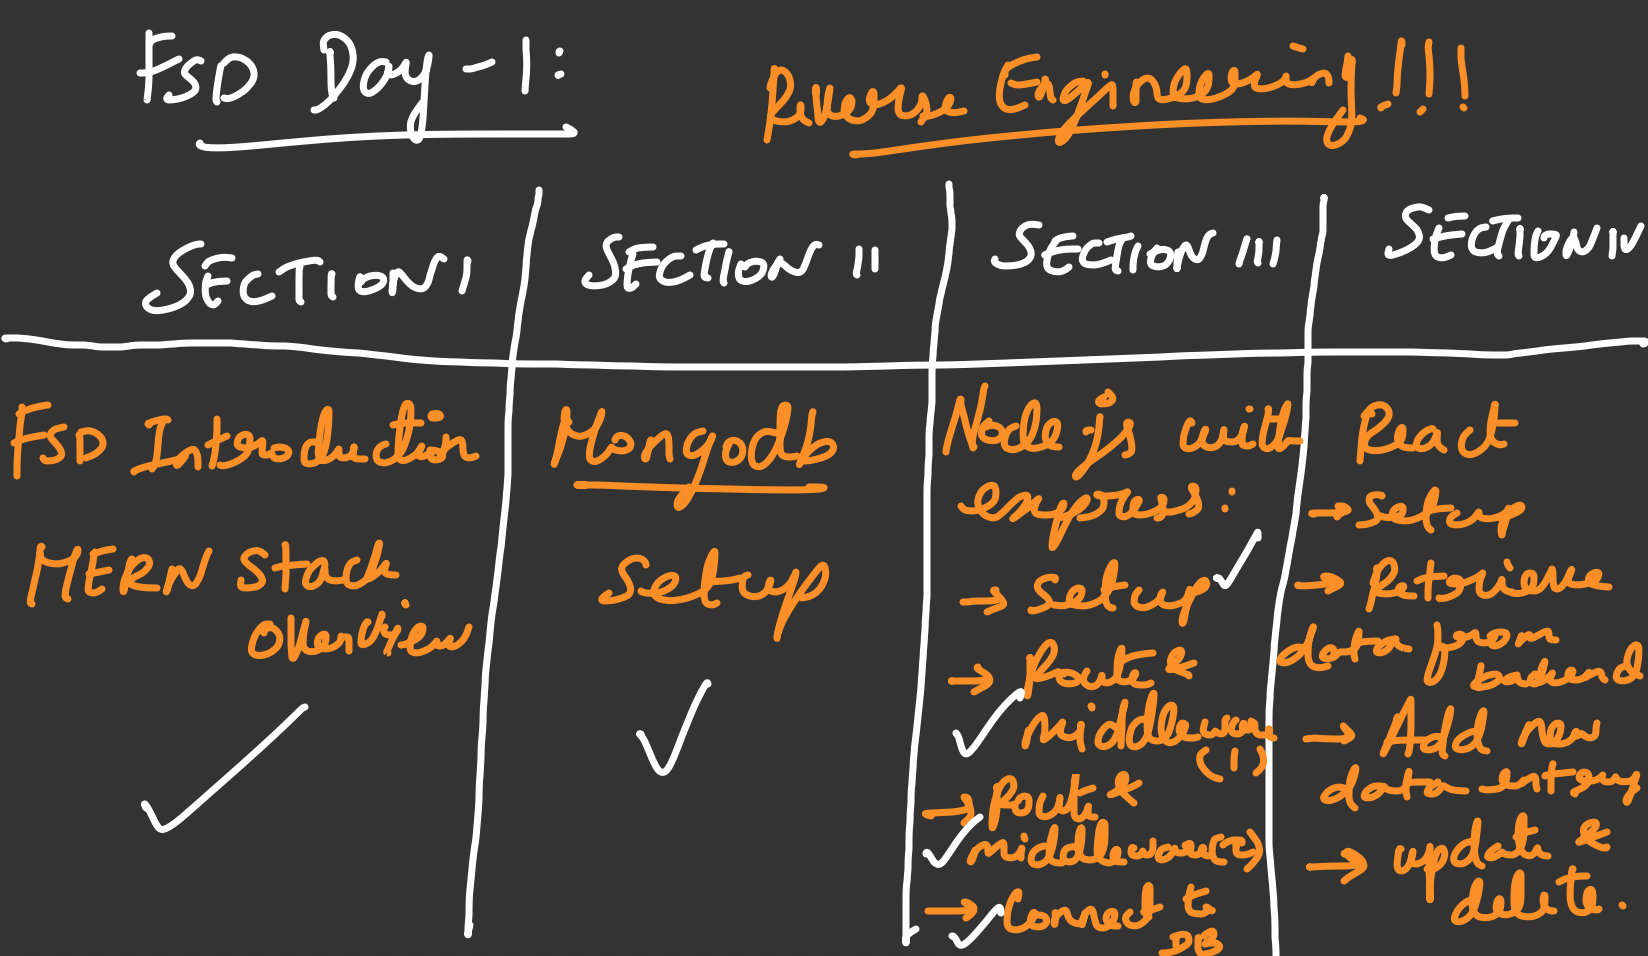 FSD Day - 1:
Reverse Engineering!!!
SECTION I
SECTION II
SECTION III
SECTION IV
FSD Introduction
MERN Stack
Overview
Mongodb
Setup
Node js with
express:
→ Setup
→ Route &
middleware
(1)
→ Route &
middleware(2)
→ Connect to
DB
React
→ Setup
→ Retrieve
data from
backend
→ Add new
data entry
→ update &
delete.